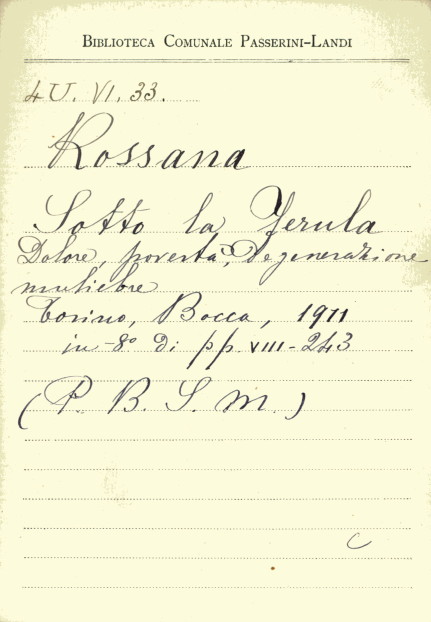 BIBLIOTECA COMUNALE PASSERINI-LANDI
4U. VI. 33.
Rossana
Sotto la ferula
Dolore, povertà, degenerazione
muliebre
Torino, Bocca, 1911
in-8º di pp. VIII-243
(P. B. S. M.)
C